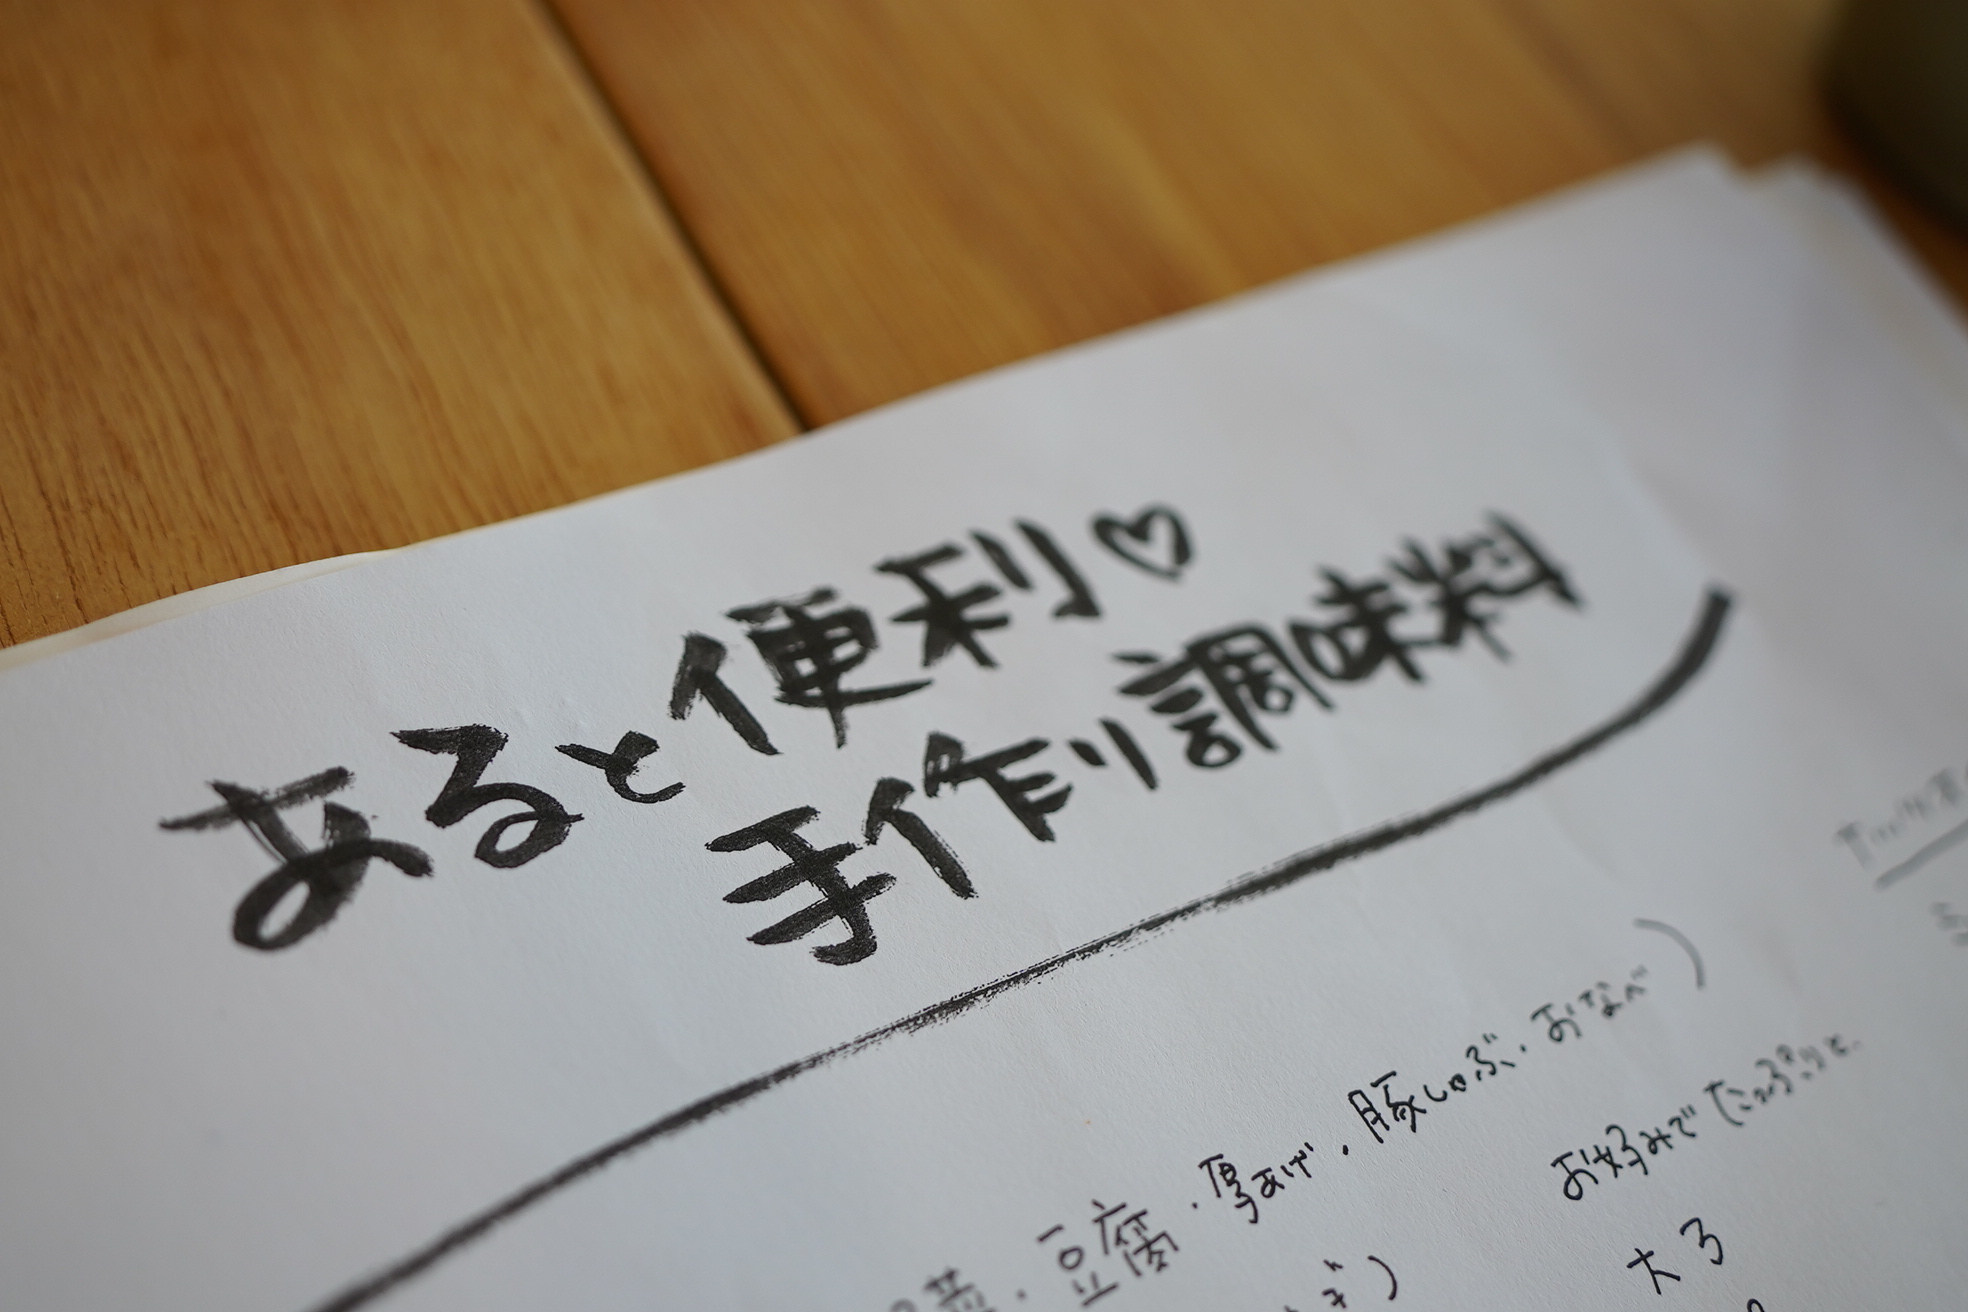 あると便利♡
手作り調味料
豆腐・厚あげ・豚しゃぶ・おなべ)
お好みでたっぷりと。
ぎ)
大3